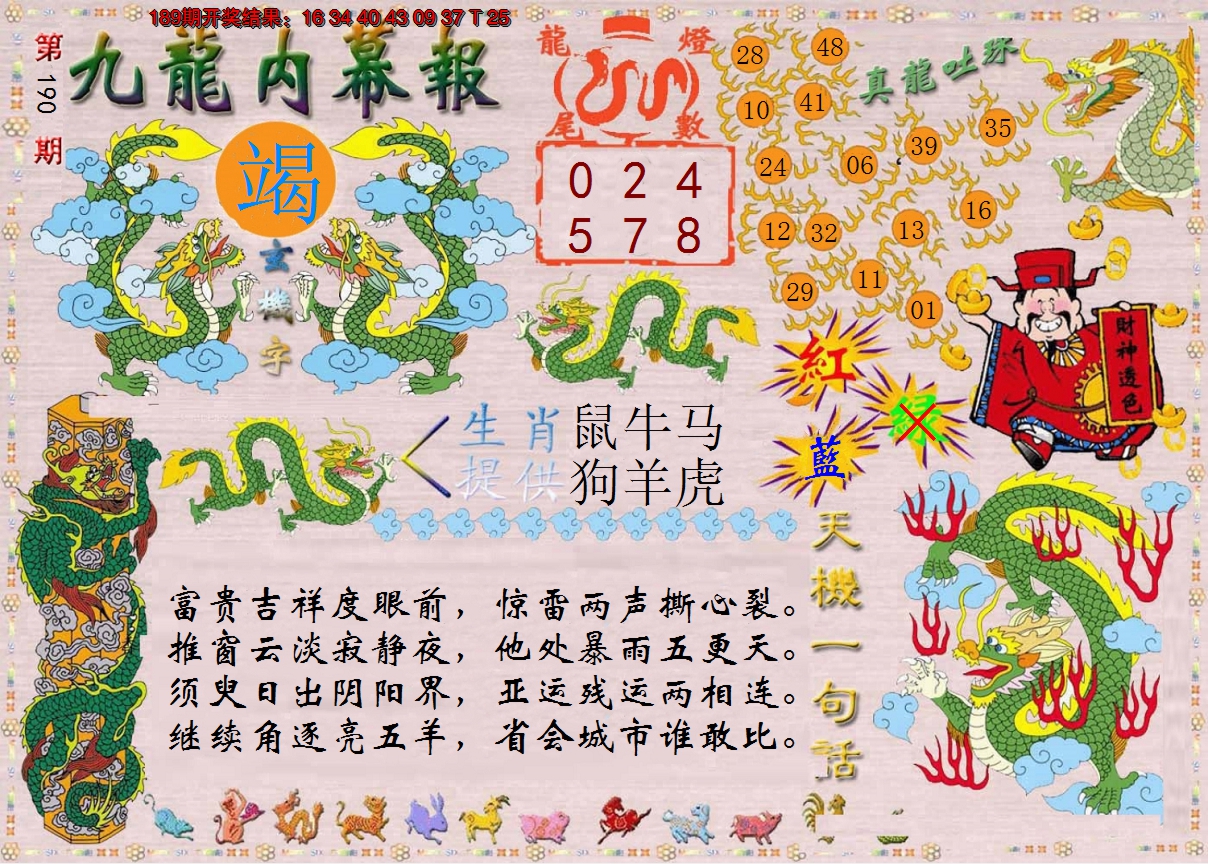 189期开奖结果：16 34 40 43 09 37 T 25
第190期
九龍内幕報
竭
玄機字
龍燈
尾數
0 2 4
5 7 8
真龍吐珠
28 48
10 41
24 06 39 35
12 32 13 16
29 11 01
紅
绿
藍
財神透色
生肖 鼠牛马
提供 狗羊虎
天機一句話
富贵吉祥度眼前，惊雷两声撕心裂。
推窗云淡寂静夜，他处暴雨五更天。
须臾日出阴阳界，亚运残运两相连。
继续角逐亮五羊，省会城市谁敢比。